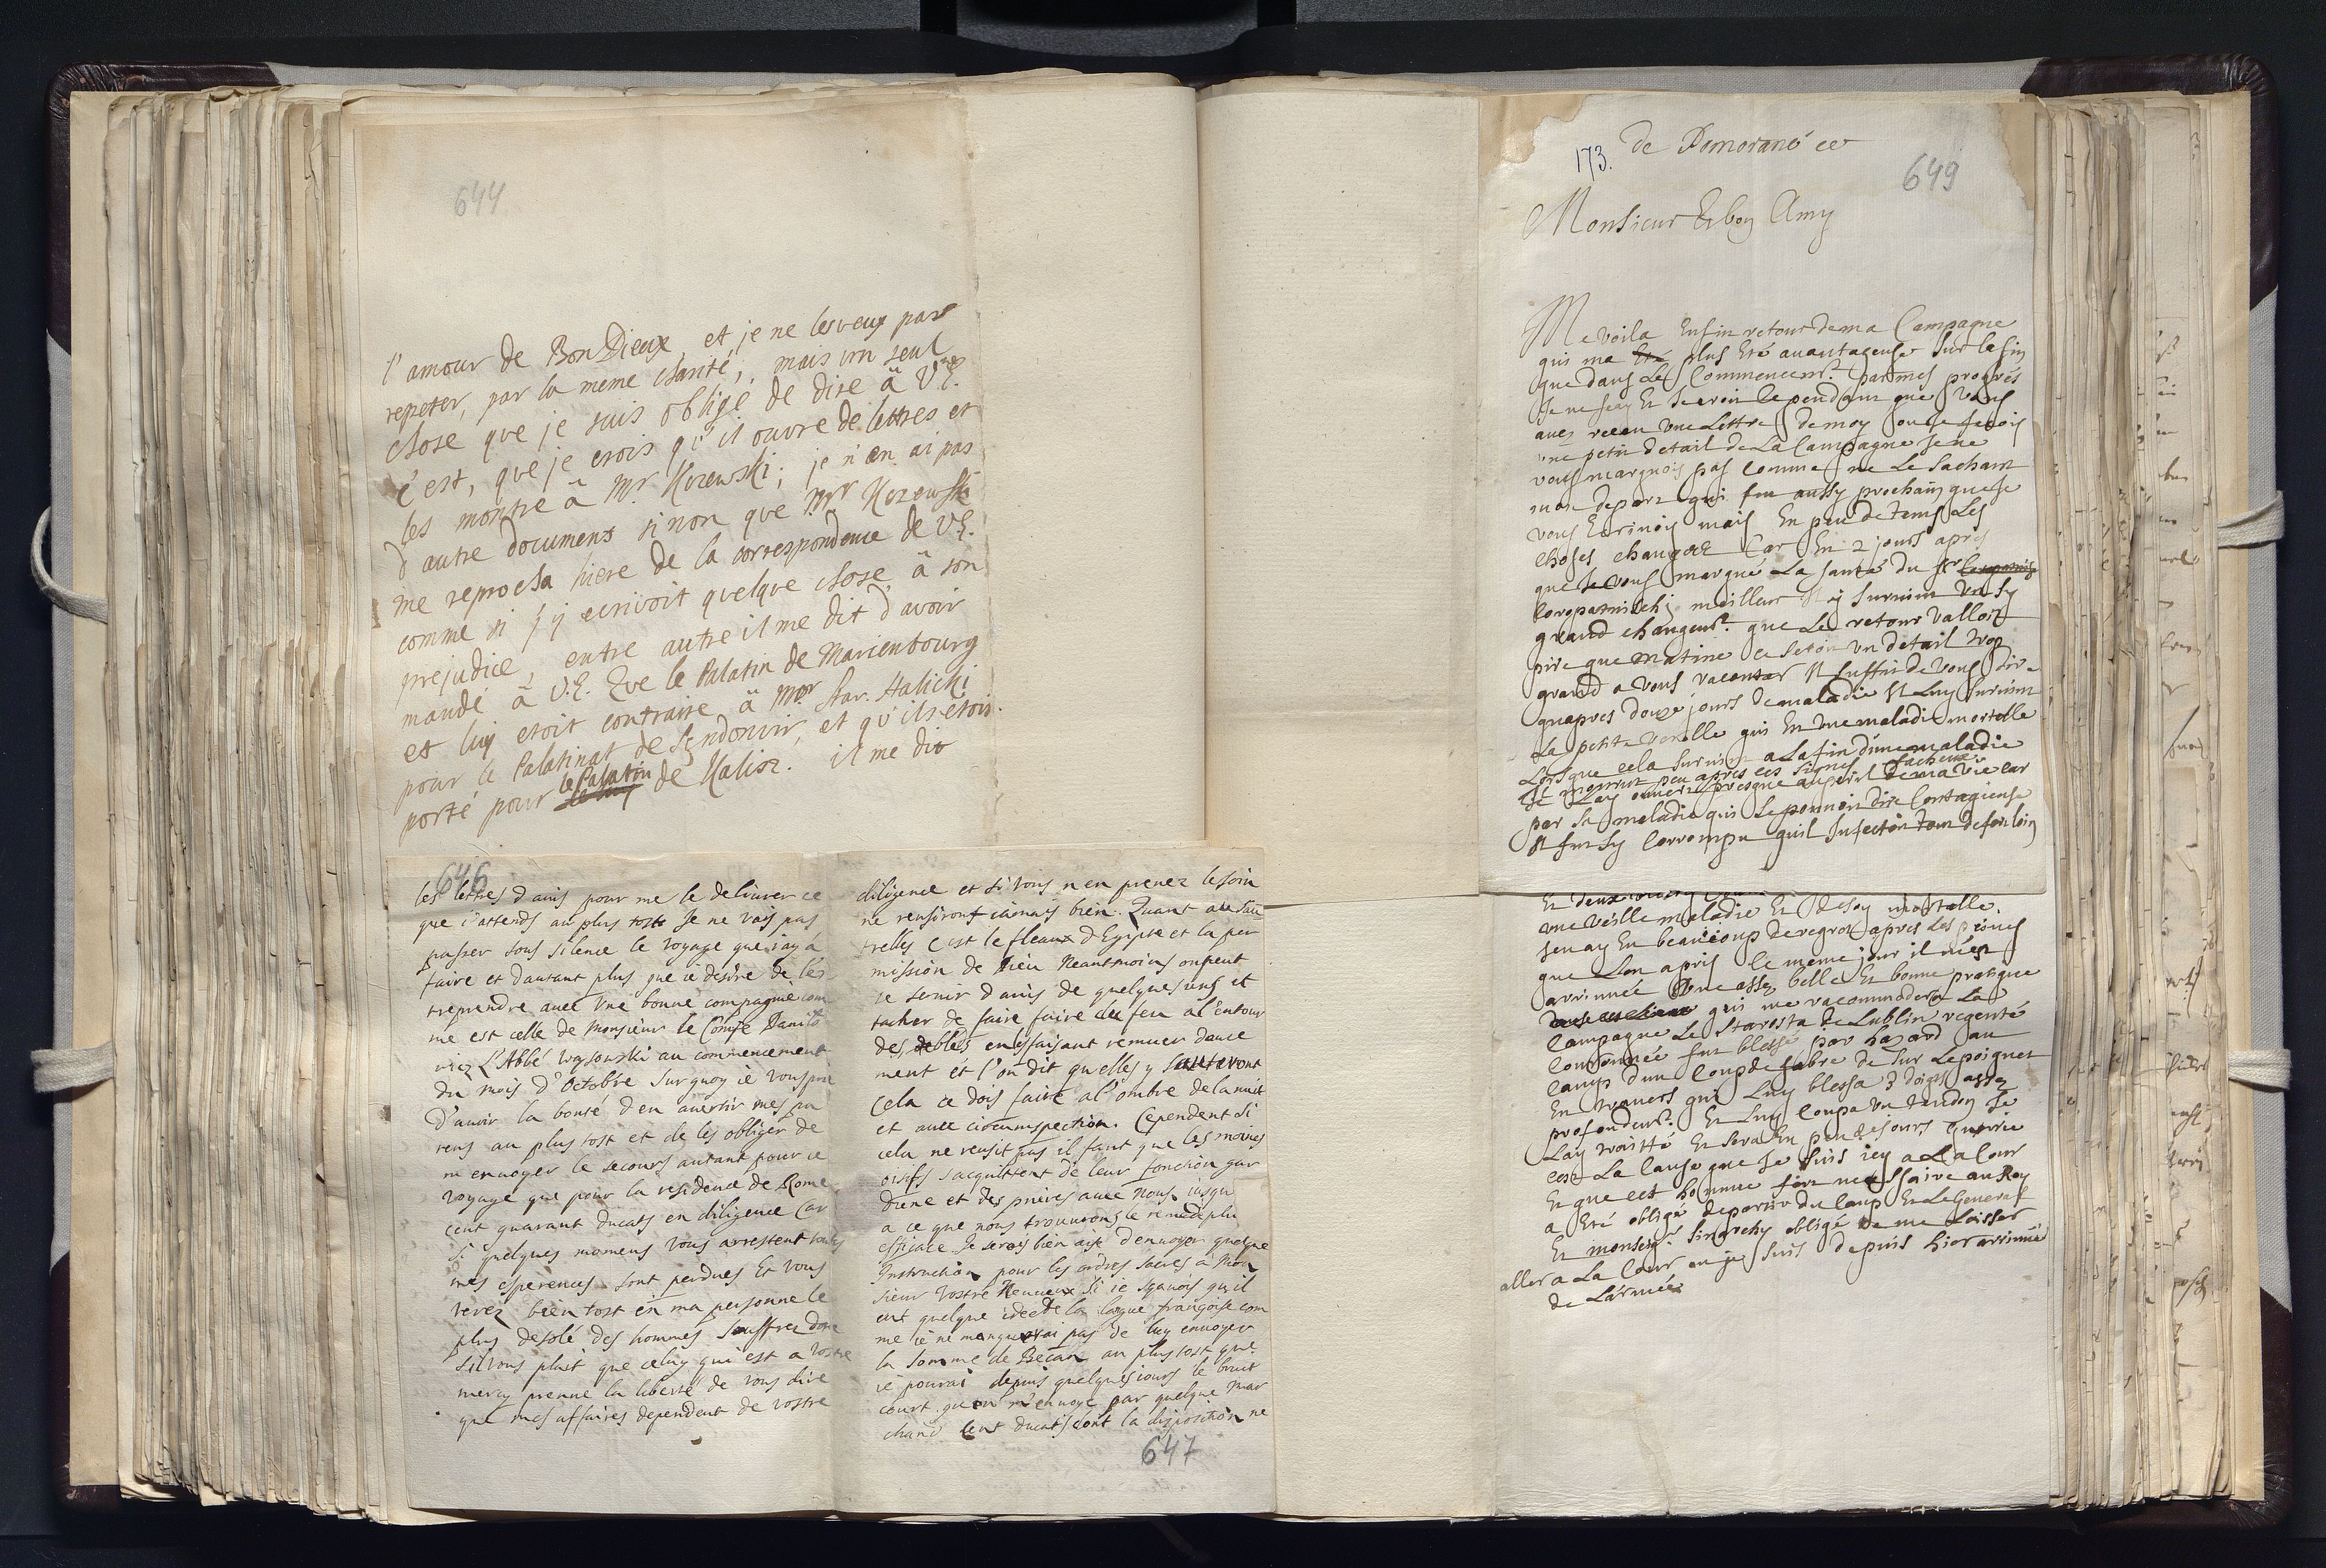 644
l'amour de Bon Dieux et je ne les veux pas
repeter, par la meme charité; mais un seul
chose que je suis obligé de dire â V.E.
c'est, que je crois qu'il ouvre de lettres et
les montre â Mr Kozewski; je n'en ai pas
d'autre document si non que Mgr Kozewski
me reprocha hiere de la correspondence de V.E.
comme si j'y ecrivoit quelque chose â son
prejudice, entre autre il me dit d'avoir
mandé â V.E. Que le Palatin de Marienbourg
et luy etoit contraire â Mgr Star. Halicki
pour le Palatinat de Sendomir, et qu'ils etoi.
porté pour le Palatin de Kalisz. il me dit
646
les lettres d'auis pour me le deliurer ce
que i'attends au plus tost Je ne vais pas
passer sous silence le voyage que i'ay â
faire et d'autant plus que ie desire de l'en
treprendre auec vne bonne compagnie com
me est celle de Monsieur le Comte Danilo
vicz L'Abbé Wysowski au commencement
du mois d'Octobre sur quoy ie vous prie
D'auoir la bonté d'en auertir mes pa
rens au plus tost et de les obliger de
m'enuoyer le secours autant pour ce
voyage que pour la residence de Rome
cent quarant ducats en diligence Car
si quelques momens vous arrestent toutes
mes esperences sont perdues Et vous
verez bien tost en ma personne le
plus desolé des hommes Souffrez donc
s'il vous plait que celuy qui est a vostre
mercy prenne la liberté de vous dire
que mes affaires dependent de vostre
diligence et si vous n'en prenez le soin
ne reusiront iamais bien. Quant au sau
trelles c'est le fleaux d'Egipte et la per
mission de Dieu Neantmoins on peut
se seruir d'auis de quelques uns et
tacher de faire faire du feu a l'entour
des bleds en essaisant remuer douce
ment et l'on dit qu'elles y sauteront
Cela ce dois faire a l'ombre de la nuit
et auec circumspection. Cependent si
cela ne reusit pas il faut que les moines
oisifs s'acquittent de leur fonction gar
diene et des prieres auec nous iusqu
a ce que nous trouuions le remede plu
efficace Je serois bien aise d'enuoyer quelque
Instruction pour les ordres sacres à Mon
sieur Vostre Neueux si ie sçauois qu'il
eut quelque idée de la langue françoise com
me ie ne manquerai pas de luy enuoyer
la somme de Becan au plus tost que
ie pourai depuis quelques iours le bruit
court qu'on m'enuoye par quelque mar
chand cent ducats dont la disposition ne
647
173.
de Pomorané ce
649
Monsieur Et bon Amy
Me voila Enfin retour de ma Campagne
qui ma plus Eté auantageuse sur la fin
que dans Le Commencemt. par mes progrés
Je ne scay Et Se croit Cependant que vous
aues receu vne Lettre de moy ou Je fesois
vne petit detail de La Campagne Je ne
vous marquois pas Comme ne Le sachant
mon depart qui fut aussy prochain que Je
vous Ecriuois mais En peu de tems Les
choses changere Car En 2 jours apres
que Je vous marqué La santé du Sr
meilleur Il y suruint Un sy
grand changemt. que Le retour Valloit
pire que matine ce seroit vn detail trop
grand a vous raconter Il suffit de vous dire
quapres douze jours de maladie Il Luy suruint
La petite verolle qui Est vne maladie mortelle
Lorsque cela suruint a La fin d'une maladie
Il mourut peu apres ces signes facheux
Je Lay ouuert presque au peril de ma vie car
par sa maladie qui Se pouuoit dire Contagieuse
Il fut sy Corrompu quil Infectoit tout de fort loin
Et deux
vne veille maladie Et de soy mortelle.
Jen ay Eu beaucoup de regret apres Les peines
que Lon a pris le meme jour il m'est
arriuée Vne assez belle Et bonne pratique
qui me racommodera La
Campagne Le Starosta de Lublin regenté
Couronnée fut blessé par hazard au
Camp d'un Coup de sabre de sur Le poignet
En trauers qui Luy blessa 3 doigts assez
profondemt. Et Luy Coupa vn tandon Je
Lay traitté Et sera En peu de Jours guerie
cest La Cause que Je suis icy a La Cour
Et que cet homme fort necessaire au Roy
a Eté obligé de partir du Camp Et Le General
Et monseigr. Siniarsky obligé de me Laisser
aller a La Cour ou je suis depuis hier arriuée
de Lármée